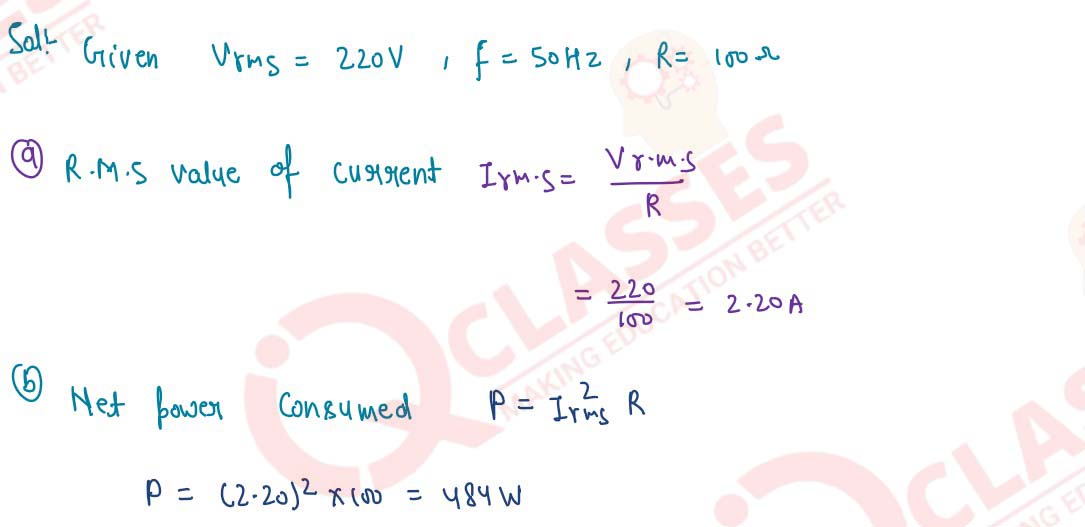 Sol:- Given Vrms = 220V , f = 50Hz , R= 100Ω
ⓐ R.M.S value of current Irm.s = Vr.m.s / R
= 220 / 100 = 2.20A
ⓑ Net power Consumed P = Irms² R
P = (2.20)² × 100 = 484W
IQ CLASSES
MAKING EDUCATION BETTER